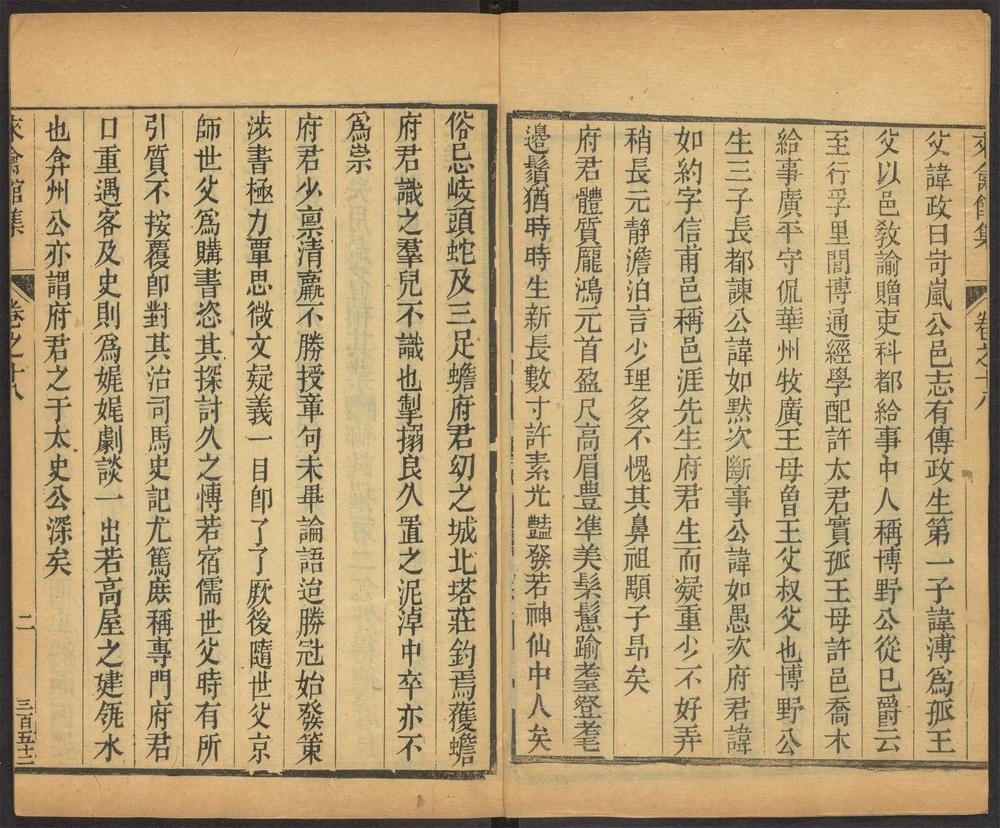 來禽館集 卷之十八
父諱政曰岢嵐公邑志有傳政生第一子諱溥爲孤王
父以邑敎諭贈吏科都給事中人稱博野公從巳爵云
至行孚里閭博通經學配許太君實孤王母許邑喬木
給事廣平守侃華州牧廣王母曾王父叔父也博野公
生三子長都諫公諱如默次斷事公諱如愚次府君諱
如約字信甫邑稱邑涯先生府君生而凝重少不好弄
稍長元静澹泊言少理多不愧其鼻祖顒子昂矣
府君體質龐鴻元首盈尺高眉豊準美髤�checkpoint
邉鬚猶時時生新長數寸許素光豔發若神仙中人矣
俗忌岐頭蛇及三足蟾府君㓜之城北塔莊釣焉獲蟾
府君識之羣兒不識也掣搦良久置之泥淖中卒亦不
爲祟
府君少禀清羸不勝授章句未畢論語迨勝冠始發策
涉書極力覃思微文疑義一目卽了了厥後隨世父京
師世父爲購書恣其探討久之愽若宿儒世父時有所
引質不按覆卽對其治司馬史記尤篤庻稱專門府君
口重遇客及史則爲娓娓劇談一出若高屋之建瓴水
也弇州公亦謂府君之于太史公深矣
來禽館集 卷之十八 二 三百五十二